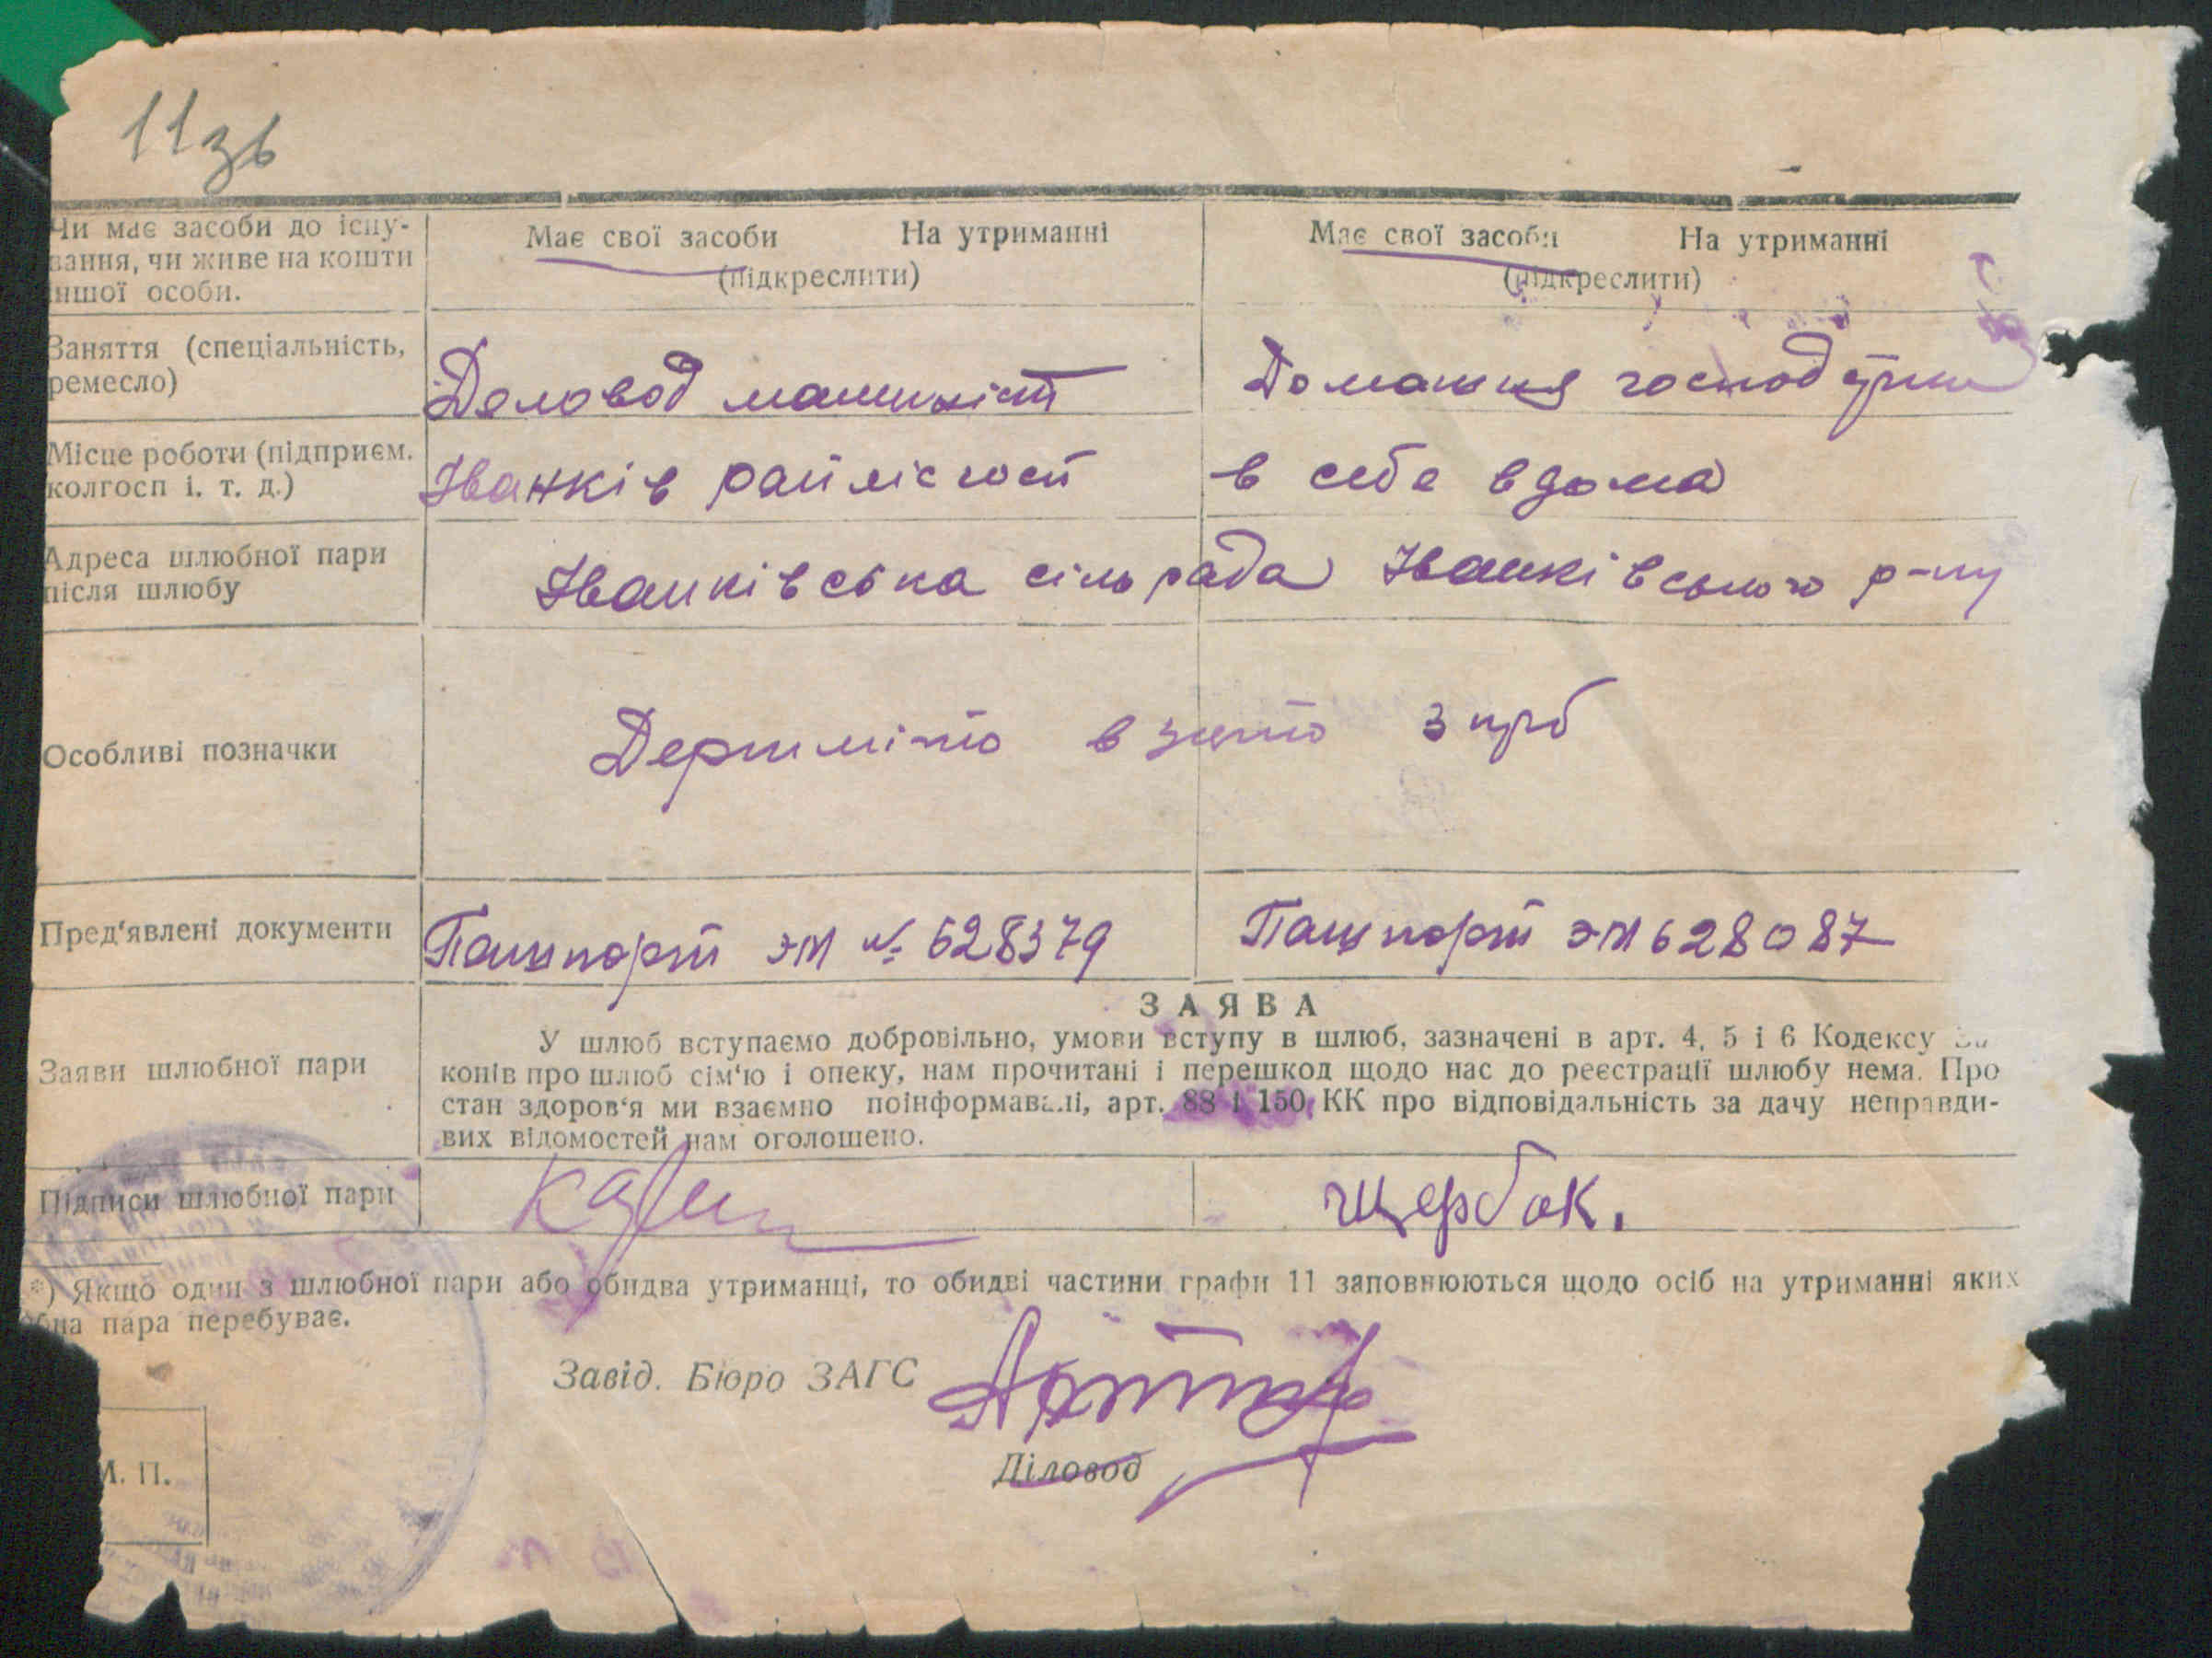 11зв
Чи має засоби до існу-
вання, чи живе на кошти
іншої особи.
Має свої засоби На утриманні
(підкреслити)
Має свої засоби На утриманні
(підкреслити)
Заняття (спеціальність,
ремесло)
Деловод машиніст
Домашня господ
Місце роботи (підприєм.
колгосп і. т. д.)
Іванків райлісгосп
в себе вдома
Адреса шлюбної пари
після шлюбу
Іванківська сільрада Іванківського р-ну
Особливі позначки
Держмито взято 3 крб
Пред'явлені документи
Пашпорт ЭМ № 628379
Пашпорт ЭМ 628087
ЗАЯВА
Заяви шлюбної пари
У шлюб вступаємо добровільно, умови вступу в шлюб, зазначені в арт. 4, 5 і 6 Кодексу За
конів про шлюб сім'ю і опеку, нам прочитані і перешкод щодо нас до реєстрації шлюбу нема. Про
стан здоров'я ми взаємно поінформавалі, арт. 88 і 150 КК про відповідальність за дачу неправди-
вих відомостей нам оголошено.
Підписи шлюбної пари
Щербак.
*) Якщо один з шлюбної пари або обидва утриманці, то обидві частини графи 11 заповнюються щодо осіб на утриманні яких
бна пара перебуває.
Завід. Бюро ЗАГС
Діловод
М. П.